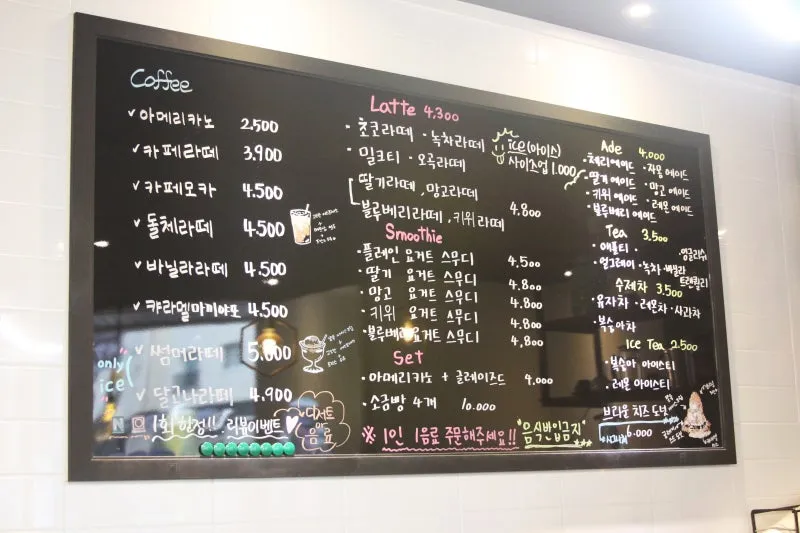 Coffee
✓아메리카노 2.500
✓카페라떼 3.900
✓카페모카 4.500
✓돌체라떼 4.500
✓바닐라라떼 4.500
✓캬라멜마끼야또 4.500
✓썸머라떼 5.000
only ice
✓달고나라떼 4.900
N 1회 한정!! 리뷰이벤트
디저트
음료
Latte 4,300
·초코라떼 ·녹차라떼
·밀크티 ·오곡라떼
딸기라떼, 망고라떼
블루베리라떼, 키위라떼 4.800
ice(아이스)
사이즈업 1.000
Smoothie
·플레인 요거트 스무디 4,500
·딸기 요거트 스무디 4.800
·망고 요거트 스무디 4.800
·키위 요거트 스무디 4.800
·블루베리요거트 스무디 4,800
Set
·아메리카노 + 클레이즈드 4,000
·소금빵 4개 10.000
※ 1인 1음료 주문해주세요!! "음식반입금지"
Ade 4,000
·체리에이드 ·자몽에이드
·딸기 에이드 ·망고 에이드
·키위 에이드 ·레몬 에이드
·블루베리 에이드
Tea 3.500
·애플티 ·잉글리쉬
·얼그레이 ·녹차 ·페퍼민트
수제차 3.500
·유자차 ·레몬차 ·사과차
·복숭아차
ICE Tea 2.500
·복숭아 아이스티
·레몬 아이스티
6.000